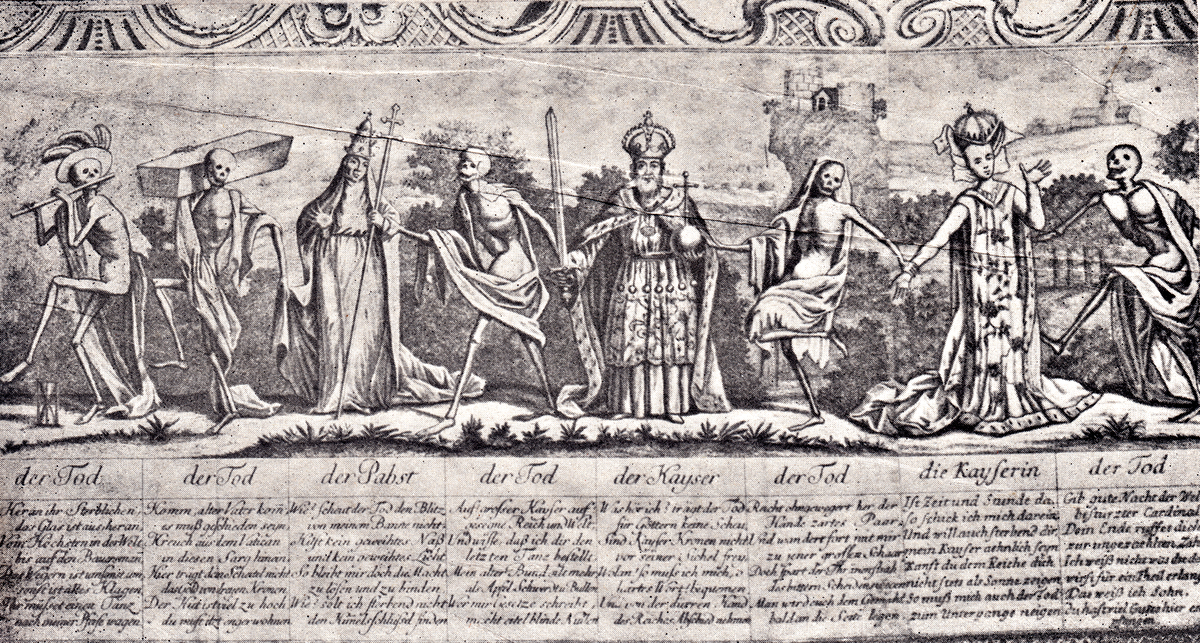 der Tod
der Tod
der Pabst
der Tod
der Kayser
der Tod
die Kayserin
der Tod
Heran ihr Sterblichen
das Glas ist aus heran
Vom Höchsten in der Welt
bis auf den Bauersman
Das Weigern ist umsonst um
sonst ist alles Klagen
Ihr müsset einen Tanz
nach meiner Pfeife wagen
Komm alter Vater kom
es muß geschieden seyn
Kreuch aus dem Vatican
in diesen Sarg hinan
Hier trägt dein Scheitel nicht
das Gold von dreyen Kronen
Der Hut ist viel zu hoch
du must enger wohnen
Wie? Schaut der Tod den Blitz
von meinem Bañe nicht
Hilft kein geweihtes Naß
und kein geweihtes Licht
So bleibt mir doch die Macht
zu lösen und zu binden
Wie? solt ich sterbend nicht
den Himelsschlüssel finden
Auf grosser Käyser auf
gesegne Reich und Welt
Und wisse daß ich dir den
letzten Tanz bestelt
Mein alter Bund gilt mehr
als Apfel Schwerdt u. Bulle
Wer mir Gesetze schreibt
macht eitel blinde Nullen
Was hör ich? trägt der Tod
für Göttern keine Scheu
Sind Kayser Kronen nicht
vor seiner Sichel frey
Wolan so muß ich mich, o
hartes Wort! bequemen
Und von der dürren Hand
des Reiches Abschied nehmen
Reicht
Hände zartes Paar
Und wandert fort mit mir
zu jener grossen Schaar
Doch spart der Ohnmacht
Man wird euch dem Gemahl
bald an die Seite legen
Ist Zeit und Stunde da,
so schick ich mich darein
Und will auch sterbend dir
mein Kayser aehnlich seyn
Kanst du dem Reiche dich
nicht stets als Sonne zeigen
So muß mich auch der Tod
zum Untergange neigen
Gib gute Nacht der Welt
bestürzter Cardinal
Dein Ende ruffet dich
zur ungezehlten Zahl
Ich weiß nicht was dir
wird für ein Theil erlaubt
Das weiß ich schon,
Du hast viel Gutes hier